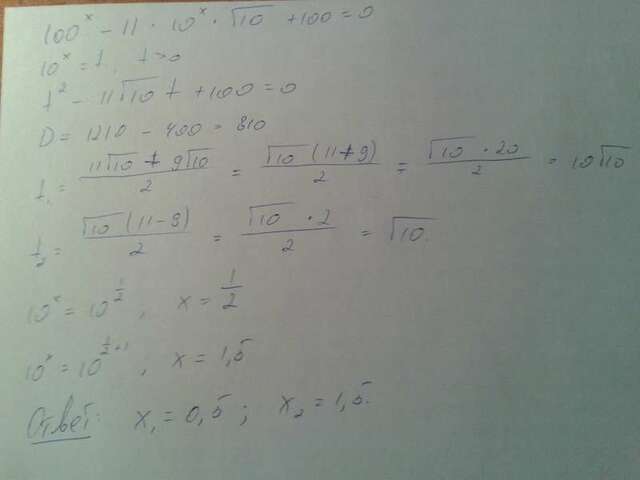 100^x - 11 · 10^x · √10 + 100 = 0
10^x = t, t > 0
t^2 - 11√10 t + 100 = 0
D = 1210 - 400 = 810
t₁ = (11√10 + 9√10)/2 = √10 (11+9)/2 = √10 · 20/2 = 10√10
t₂ = √10 (11-9)/2 = √10 · 2/2 = √10.
10^x = 10^(1/2), x = 1/2
10^x = 10^(1/2+1), x = 1,5
Ответ: x₁ = 0,5; x₂ = 1,5.